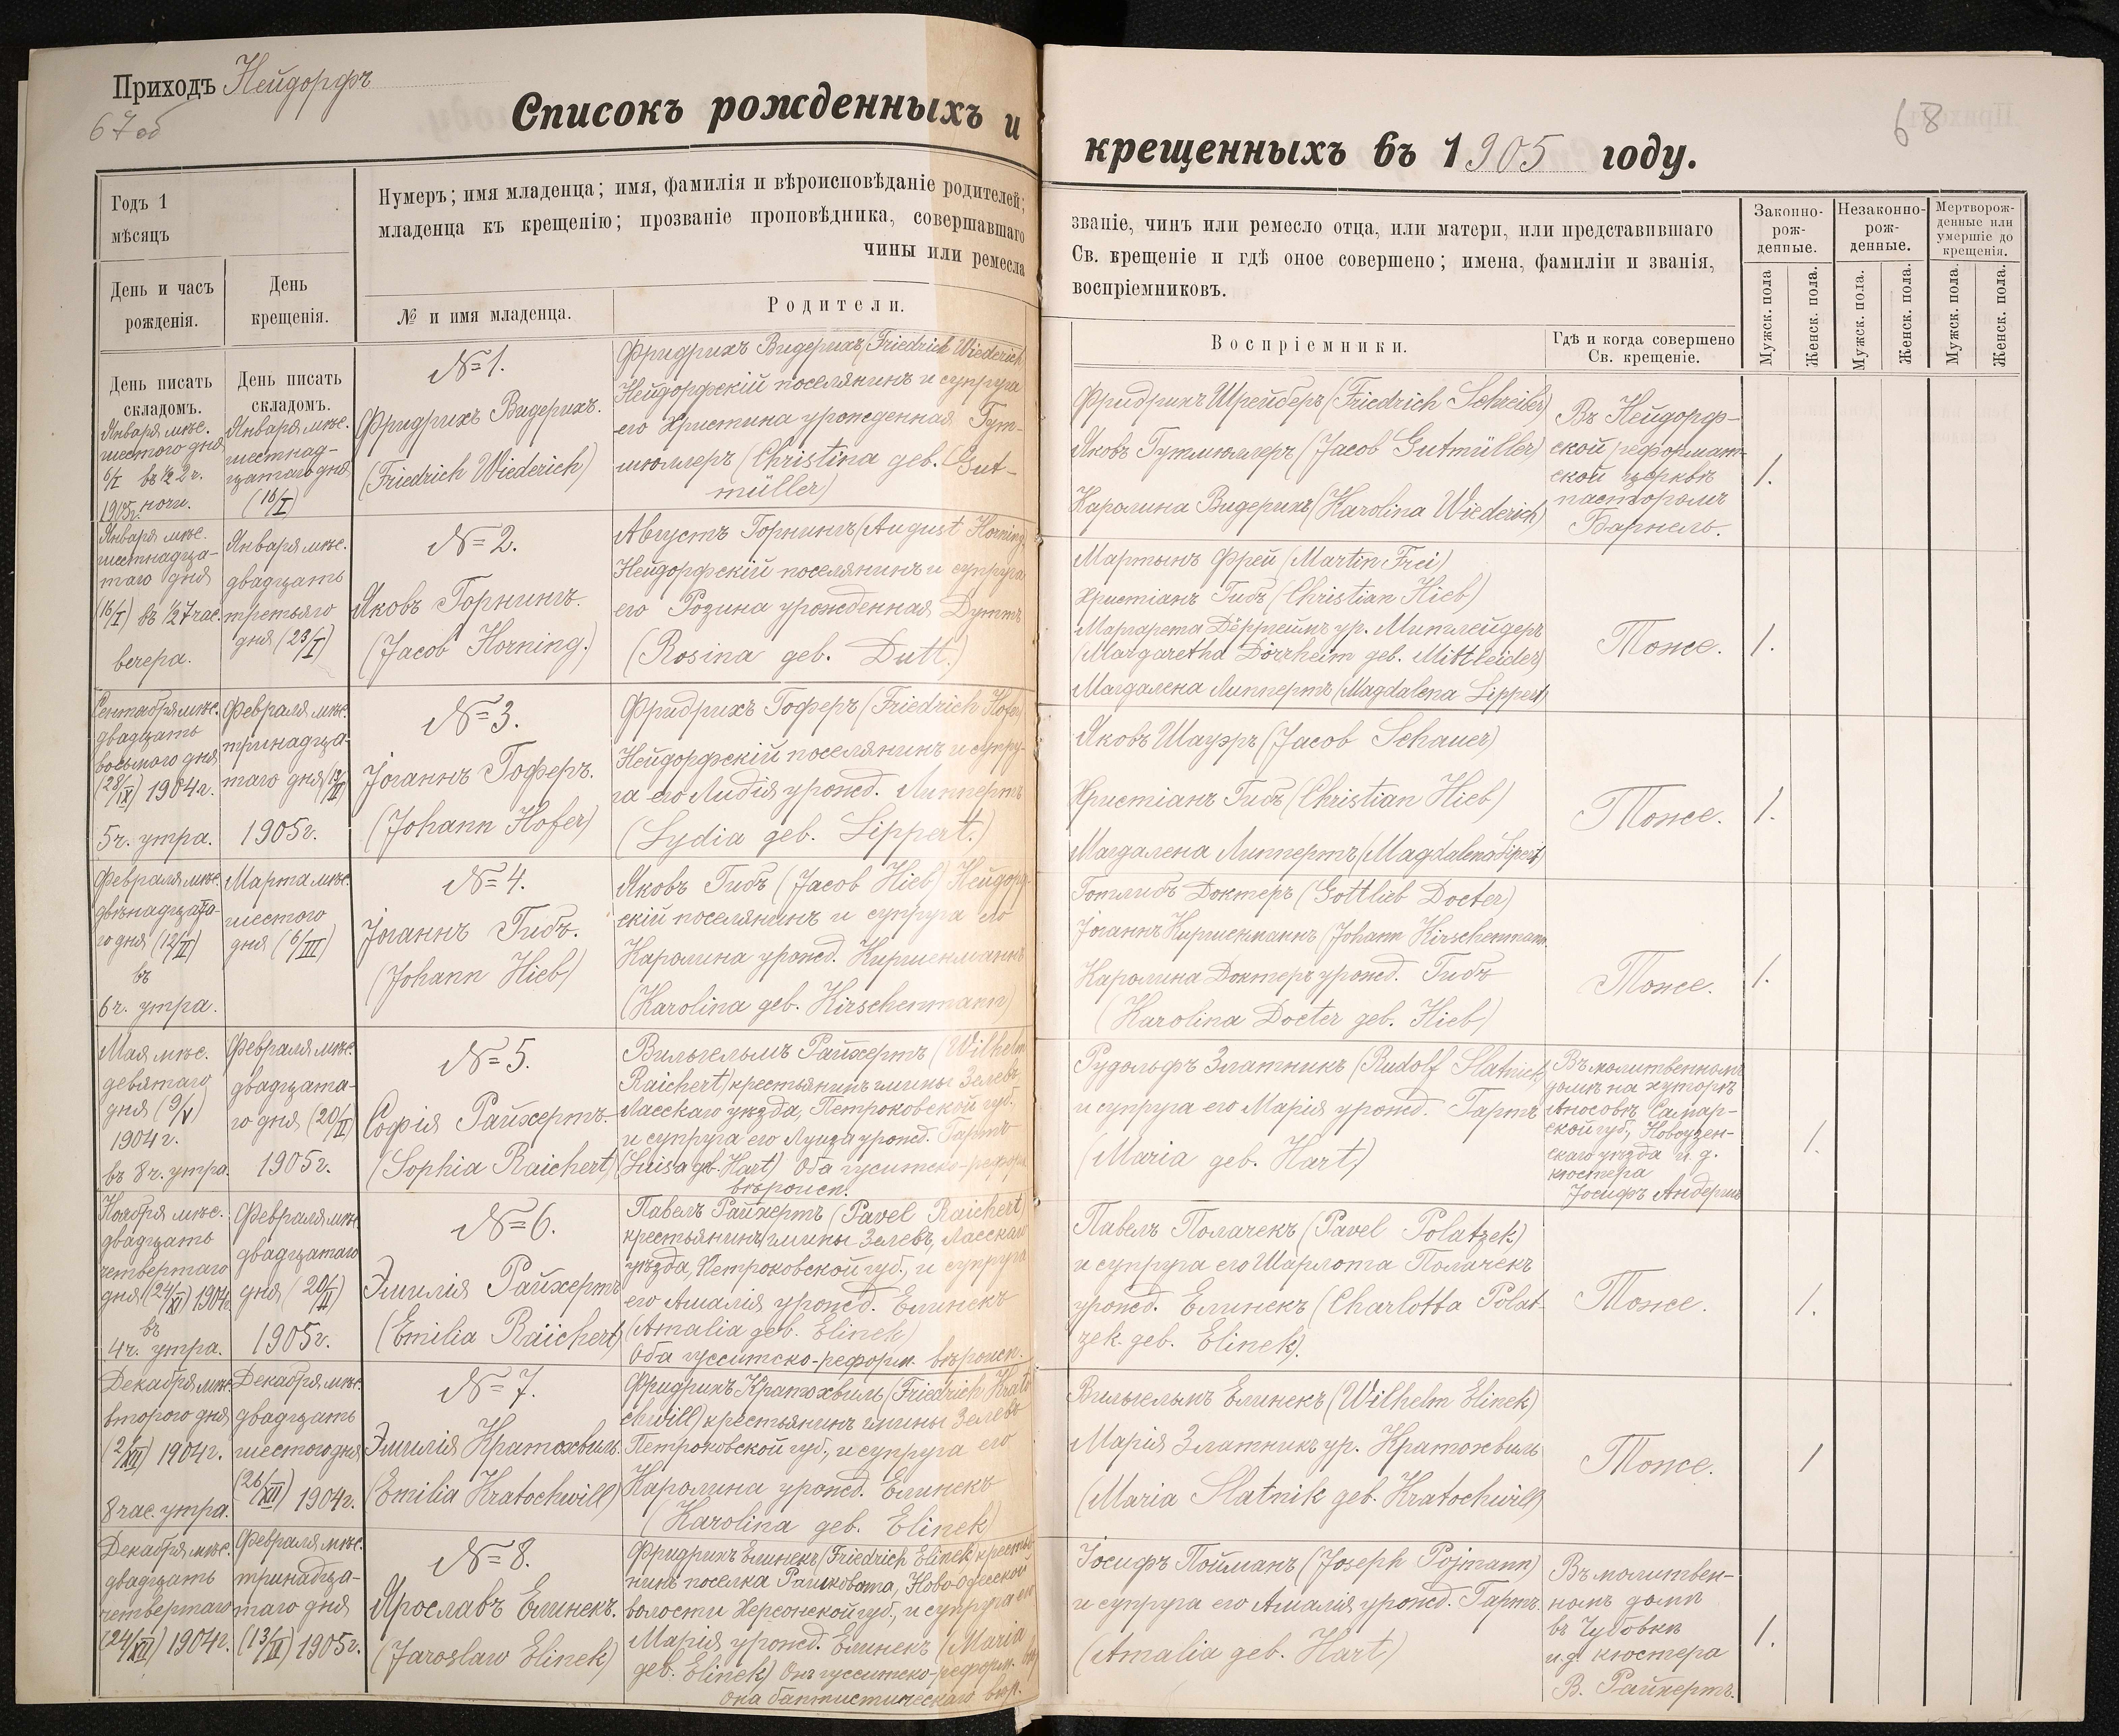 Приходъ Нейдорфъ
67об
68
Списокъ рожденныхъ и крещенныхъ въ 1905 году.
Годъ 1
мѣсяцъ
Нумеръ; имя младенца; имя, фамилія и вѣроисповѣданіе родителей;
младенца къ крещенію; прозваніе проповѣдника, совершавшаго
чины или ремесла
званіе, чинъ или ремесло отца, или матери, или представившаго
Св. крещеніе и гдѣ оное совершено; имена, фамиліи и званія,
воспріемниковъ.
Законно-
рож-
денные.
Незаконно-
рож-
денные.
Мертворож-
денные или
умершіе до
крещенія.
День и часъ
рожденія.
День
крещенія.
№ и имя младенца.
Родители.
Воспріемники.
Гдѣ и когда совершено
Св. крещеніе.
Мужск. пола
Женск. пола.
Мужск. пола.
Женск. пола.
Мужск. пола.
Женск. пола.
День писать
складомъ.
День писать
складомъ.
Января мѣс.
шестого дня
6/I въ ½ 2 ч.
1905г. ночи.
Января мѣс.
шестнад-
цатаго дня
(16/I)
№ 1.
Фридрихъ Видерихъ.
(Friedrich Wiederich)
Фридрихъ Видерихъ (Friedrich Wiederich)
Нейдорфскій поселянинъ и супруга
его Христина урожденная Гут-
мюллеръ (Christina geb. Gut-
müller)
Фридрихъ Шрейберъ (Friedrich Schreiber)
Яковъ Гутмюллеръ (Jacob Gutmüller)
Каролина Видерихъ (Karolina Wiederich)
Въ Нейдорф-
ской реформат-
ской церквѣ
пасторомъ
Барнель.
1.
Января мѣс.
шестнадца-
таго дня
(16/I) въ ½ 7 час.
вечера.
Января мѣс.
двадцать
третьяго
дня (23/I)
№ 2.
Яковъ Горнингъ.
(Jacob Horning.)
Августъ Горнингъ (August Horning)
Нейдорфскій поселянинъ и супруга
его Розина урожденная Дуттъ
(Rosina geb. Dutt.)
Мартынъ Фрей (Martin Frei)
Христіанъ Гибъ (Christian Hieb)
Маргарета Дёррgеймъ ур. Митлейдеръ
(Margaretha Dörrheim geb. Mittleider)
Магдалена Липпертъ (Magdalena Lippert)
Тоже.
1.
Сентября мѣс.
двадцать
восьмого дня
(28/IX) 1904г.
5ч. утра.
Февраля мѣс.
тринадца-
таго дня (13/II)
1905г.
№ 3.
Іоганнъ Гоферъ.
(Johann Hofer)
Фридрихъ Гоферъ (Friedrich Hofer)
Нейдорфскій поселянинъ и супру-
га его Лидія урожд. Липпертъ
(Lydia geb. Lippert.)
Яковъ Шауэръ (Jacob Schauer)
Христіанъ Гибъ (Christian Hieb)
Магдалена Липпертъ (Magdalena Lipert)
Тоже.
1.
Февраля мѣс.
двѣнадцата-
го дня (12/II)
въ
6ч. утра.
Марта мѣс.
шестого
дня (6/III)
№ 4.
Іоганнъ Гибъ.
(Johann Hieb)
Яковъ Гибъ (Jacob Hieb) Нейдорф-
скій поселянинъ и супруга его
Каролина урожд. Киршенманнъ
(Karolina geb. Kirschenmann)
Готлибъ Доктеръ (Gottlieb Docter)
Іоганнъ Киршенманнъ (Johann Kirschenmann
Каролина Доктеръ урожд. Гибъ
(Karolina Docter geb. Hieb)
Тоже.
1.
Мая мѣс.
девятаго
дня (9/V)
1904г.
въ 8ч. утра.
Февраля мѣс.
двадцата-
го дня (20/II)
1905г.
№ 5.
Софія Райхертъ.
(Sophia Raichert)
Вильгельмъ Райхертъ (Wilhelm
Raichert) крестьянинъ гмины Зелевъ
Ласскаго уѣзда, Петроковской губ.,
и супруга его Луиза урожд. Гартъ
(Luisa geb. Hart) Оба гуситско-реформ.
вѣроисп.
Рудольфъ Златникъ (Rudolf Slatnick)
и супруга его Марія урожд. Гартъ
(Maria geb. Hart)
Въ молитвенномъ
домѣ на хуторѣ
Аносовѣ Самар-
ской губ., Новоузен-
скаго уѣзда и. д.
кюстера
Іосифъ Андершъ
1.
Ноября мѣс.
двадцать
четвертаго
дня (24/XI) 1904г.
въ
4ч. утра.
Февраля мѣс.
двадцатаго
дня (20/II)
1905г.
№ 6.
Эмилія Райхертъ
(Emilia Raichert)
Павелъ Райхертъ (Pavel Raichert)
крестьянинъ гмины Зелевъ, Ласскаго
уѣзда, Петроковской губ., и супруга
его Амалія урожд. Елинекъ
(Amalia geb. Elinek)
Оба гусситско-реформ. вѣроисп.
Павелъ Полачекъ (Pavel Polatzek)
и супруга его Шарлота Полачекъ
урожд. Елинекъ (Charlotta Polat-
zek geb. Elinek).
Тоже.
1.
Декабря мѣс.
второго дня
(2/XII) 1904г.
8 час. утра.
Декабря мѣс.
двадцать
шестого дня
(26/XII) 1904г.
№ 7.
Эмилія Кратохвиль
(Emilia Kratochwill)
Фридрихъ Кратохвиль (Friedrich Krato-
chwill) крестьянинъ гмины Зелевъ
Петроковской губ., и супруга его
Каролина урожд. Елинекъ
(Karolina geb. Elinek)
Вильгельмъ Елинекъ (Wilhelm Elinek)
Марія Златникъ ур. Кратохвиль
(Maria Slatnik geb. Kratochwill)
Тоже.
1
Декабря мѣс.
двадцать
четвертаго
(24/XII) 1904г.
Февраля мѣс.
тринадца-
таго дня
(13/II) 1905г.
№ 8.
Ярославъ Елинекъ.
(Jaroslaw Elinek)
Фридрихъ Елинекъ (Friedrich Elinek) кресть-
нинъ поселка Рашковата, Ново-Одесской
волости Херсонской губ., и супруга его
Марія урожд. Елинекъ (Maria
geb. Elinek) Онъ гусситско-реформ.
Она баптистическаго вѣр.
Іосифъ Пойманъ (Joseph Pojmann)
и супруга его Амалія урожд. Гартъ.
(Amalia geb. Hart)
Въ молитвен-
номъ домѣ
въ Чубовкѣ
и.д. кюстера
В. Райхертъ.
1.